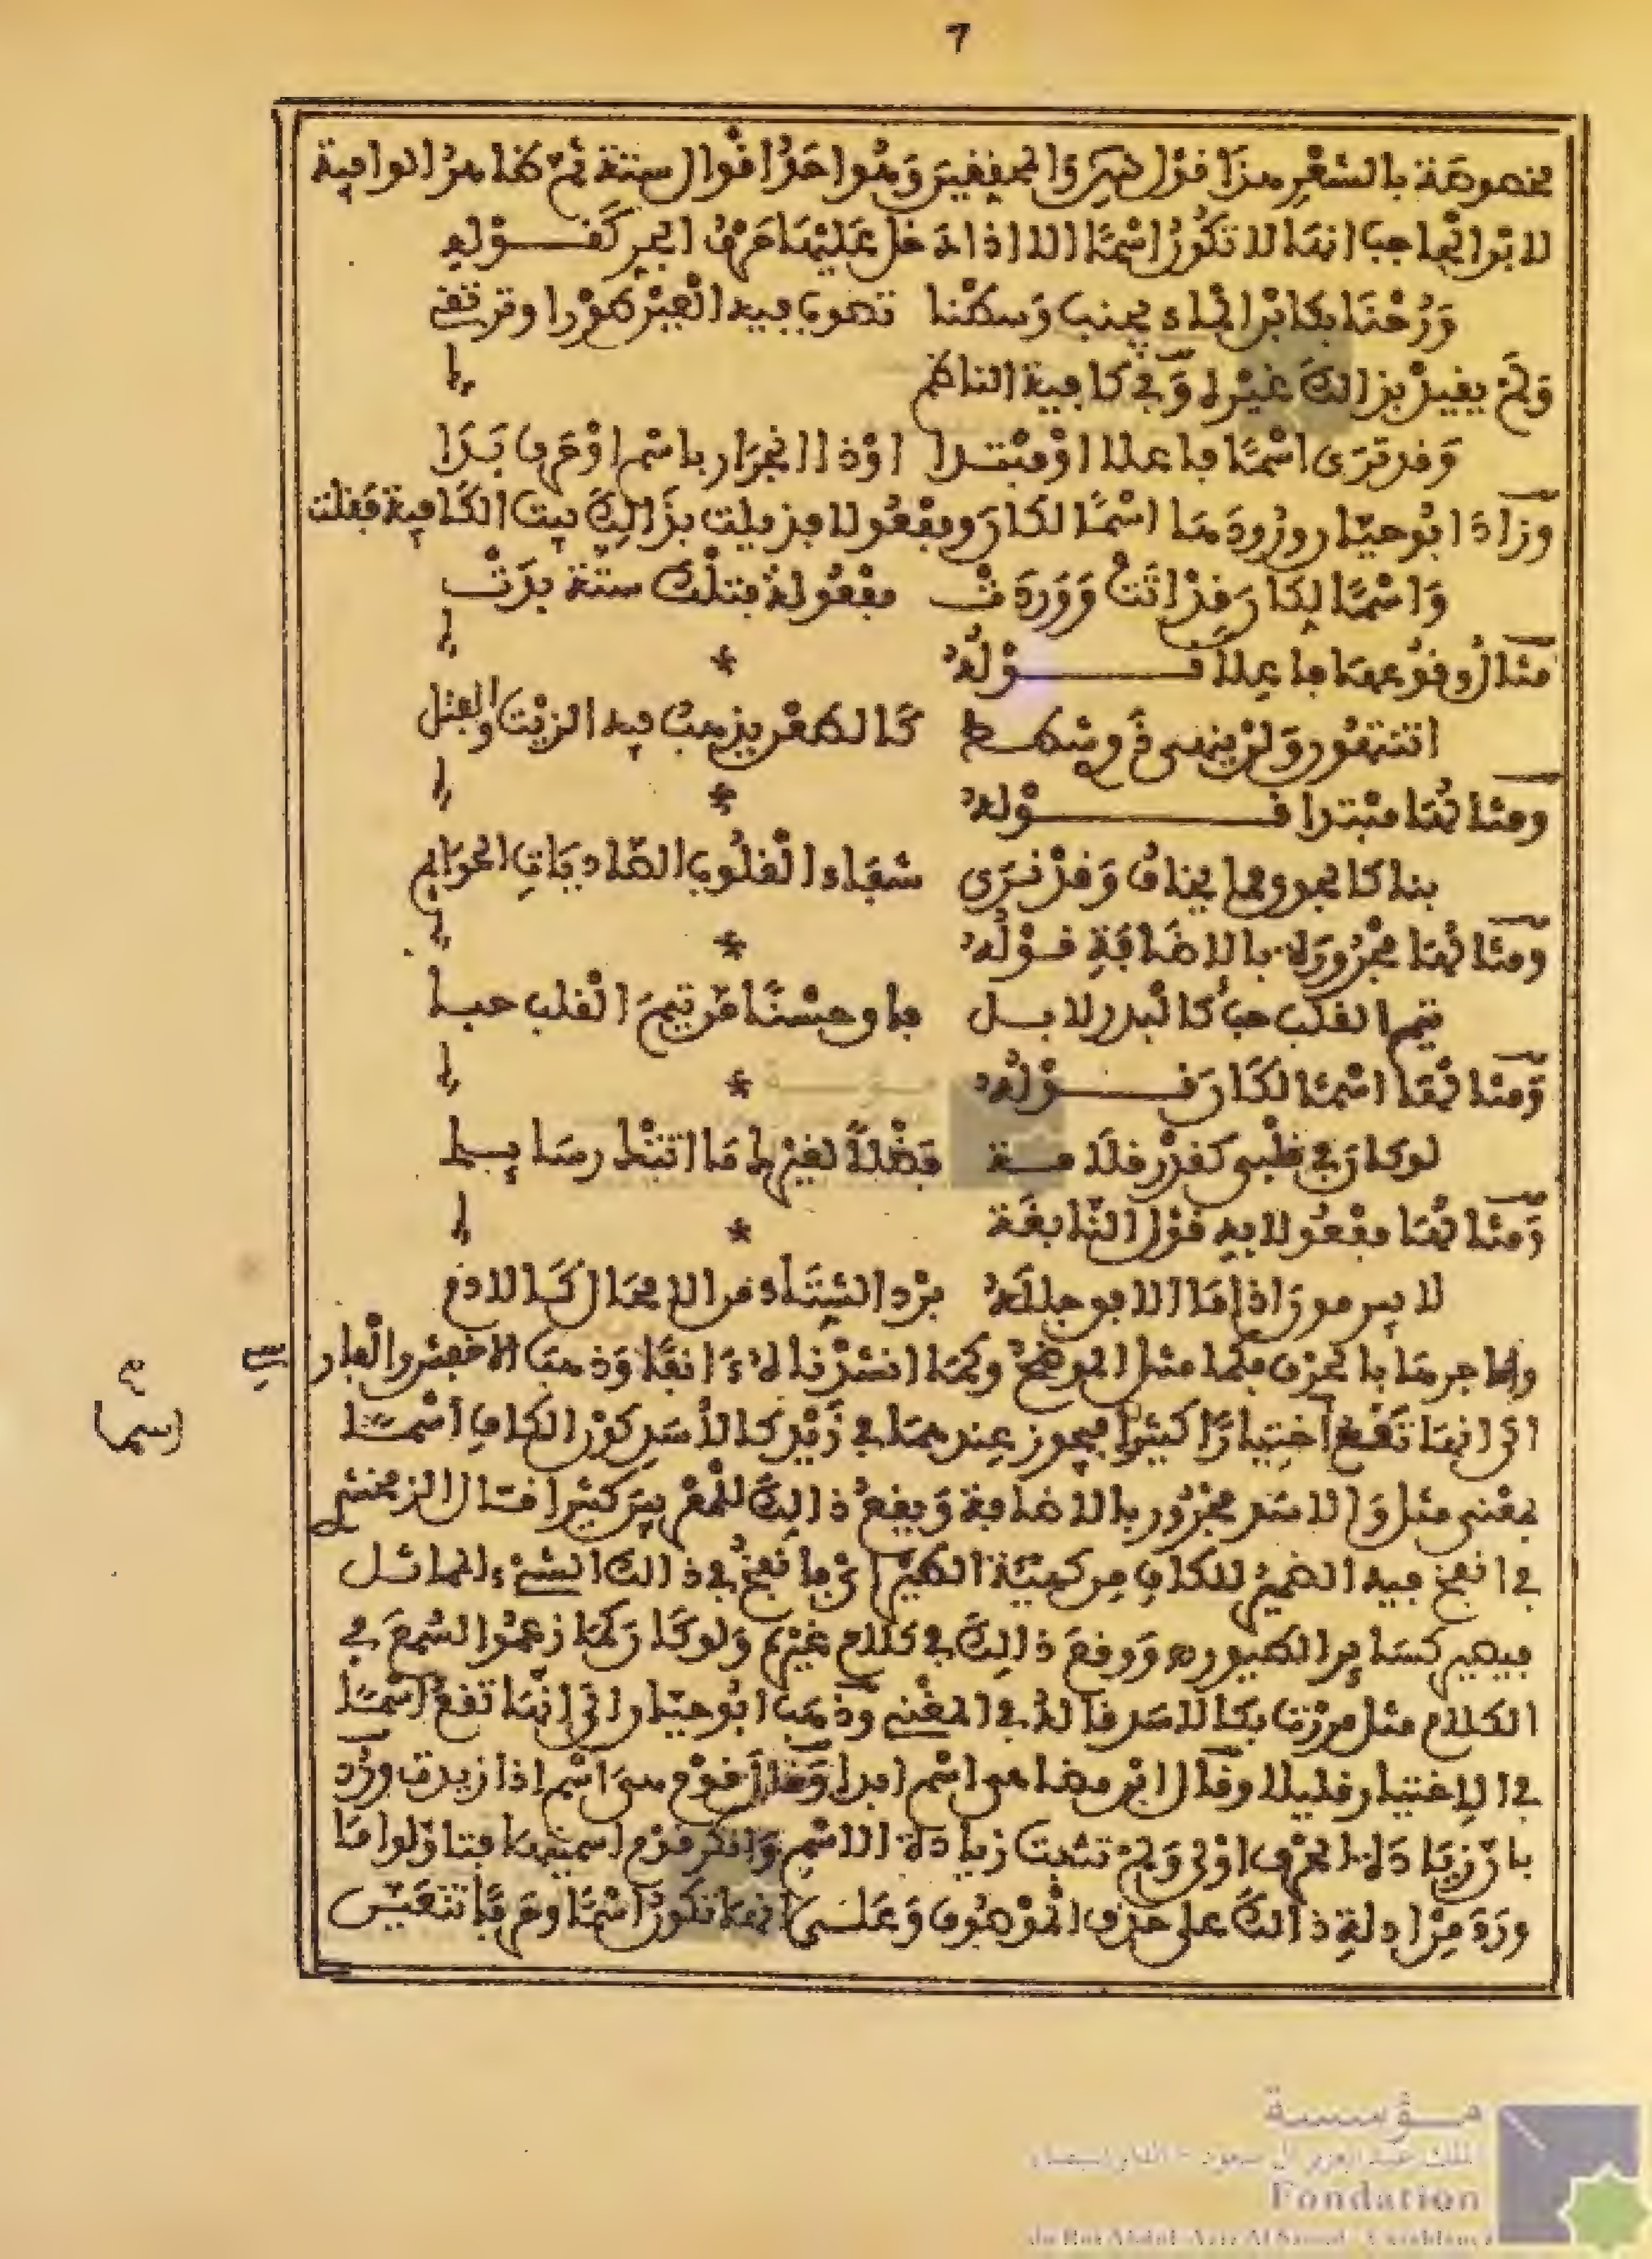 7
مخصوصة بالشعر هذا قول س والمحققين وهو احد اقوال ستة ثم ظاهر الوافية
لابن الحاجب انها لا تكون اسما الا اذا دخل عليها حرف الجر كقوله
ورحنا بكابن الماء يجنب وسطنا تصوب فيه العين طورا وترتقي
ولم يقيد بذالك غيره وفي كافية الناظم
وقد ترى اسما فاعلا او مبتدا او ذا انجرار باسم او حرف بدا
وزاد ابو حيان ورودها اسما لكان ومفعولا فزيلت بذالك بيت الكافية فقلت
واسما لكان قد اتت ووردت مفعولة فتلك ستة بدت
مثال وقوعها فاعلا قوله
اتنتهون ولن ينهى ذوي شطط كالطعن يذهب فيه الزيت والفتل
ومثالها مبتدا قوله
بنا كالجوى مما يخاف وقد نرى شفاء القلوب الصاديات الحوايم
ومثالها مجرورة بالاضافة قوله
تيم القلب حب كالبدر لا بل فاق حسنا من تيم القلب حبا
ومثالها اسما لكان قوله
لو كان في قلبي كقدر قلامة فضلا لغيرك ما اتتك رسايلي
ومثالها مفعولا به قول النابغة
لا يبرمون اذا ما الافق جلله برد الشتاء من الامحال كالادم
واما جرها بالحرف فكما مثل الموضح وكما انشدناه ءانفا وذهب الاخفش والفارسي
الى انها تقع اختيارا كثيرا فيجوز عندهما في زيد كالاسد كون الكاف اسما
بمعنى مثل والاسد مجرور بالاضافة ويقع ذالك للمعربين كثيرا قال الزمخشري
في انفخ فيه الضمير للكاف من كهيئة الطير اي فانفخ في ذالك الشيء المماثل
فيصير كساير الطيور ه ووقع ذالك في كلام غيره ولو كان كما زعموا لسمع في
الكلام مثل مررت بكالاسد قاله في المغني وذهب ابو حيان الى انها تقع اسما
في الاختيار قليلا وقال ابن مضاء هي اسم ابدا وقال قوم هي اسم اذا زيدت ورد
بان زيادة الحرف اولى ولم تثبت زيادة الاسم وانكر قوم اسميتها فتاولوا ما
ورد من ادلة ذالك على حذف الموصوف وعلى انها تكون اسما وحرفا تتعين
(سما)
مؤسسة
الملك عبد العزيز آل سعود - الدار البيضاء
Fondation
du Roi Abdul-Aziz Al Saoud - Casablanca